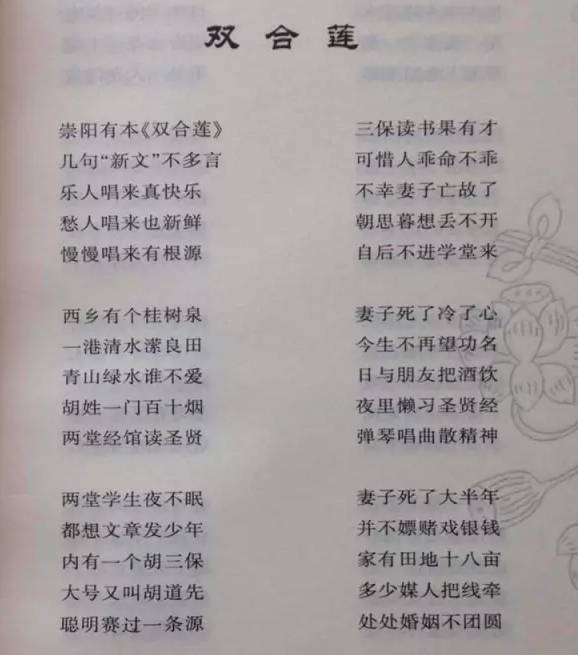 双合莲
崇阳有本《双合莲》
几句“新文”不多言
乐人唱来真快乐
愁人唱来也新鲜
慢慢唱来有根源
西乡有个桂树泉
一港清水潆良田
青山绿水谁不爱
胡姓一门百十烟
两堂经馆读圣贤
两堂学生夜不眠
都想文章发少年
内有一个胡三保
大号又叫胡道先
聪明赛过一条源
三保读书果有才
可惜人乖命不乖
不幸妻子亡故了
朝思暮想丢不开
自后不进学堂来
妻子死了冷了心
今生不再望功名
日与朋友把酒饮
夜里懒习圣贤经
弹琴唱曲散精神
妻子死了大半年
并不嫖赌戏银钱
家有田地十八亩
多少媒人把线牵
处处婚姻不团圆